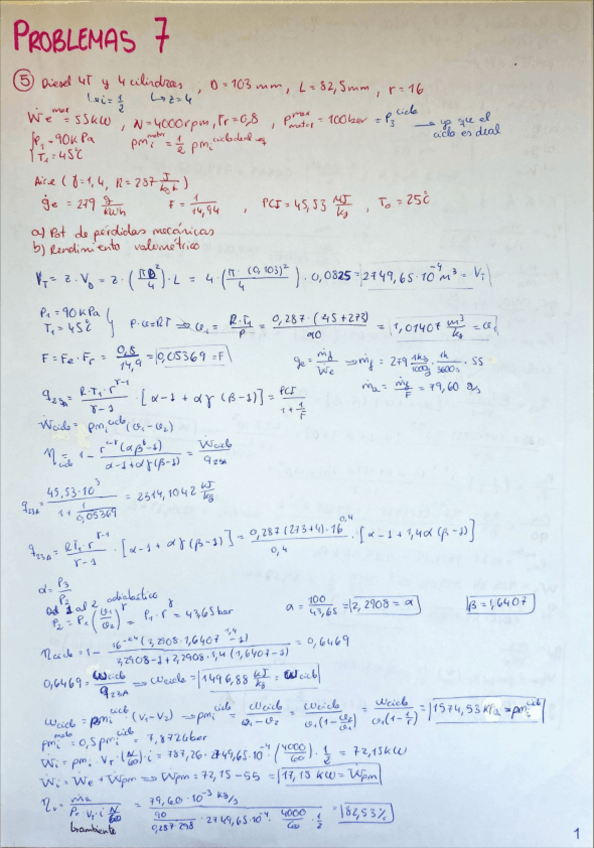 PROBLEMAS 7
⑤ Diesel 4T y 4 cilindros , D = 103 mm , L = 82,5mm , r = 16
↳ i = 1/2 ↳ z = 4
Ẇe max = 55kW , N = 4000rpm, Fr = 0,8 , p max motor = 100bar = P3 ciclo → ya que el ciclo es ideal
P1 = 90KPa
T1 = 45°C
pmi motor = 1/2 pmi ciclo ideal eq
Aire (γ = 1,4, R = 287 J/kg·k)
ge = 279 g/kWh F = 1/14,94 , PCI = 45,53 MJ/kg , T0 = 25°C
a) Pot de pérdidas mecánicas
b) Rendimiento volumétrico
VT = z · VD = z · (πD²/4) · L = 4 · (π · (0,103)²/4) · 0,0825 = 2749,65·10⁻⁴ m³ = VT
P1 = 90KPa
T1 = 45°C
P·v = RT ⇒ v1 = R·T1/P = 0,287 · (45+273)/90 = 1,01407 m³/kg = v1
F = Fe · Fr = 0,8/14,9 = 0,05369 = F
ge = ṁf/Ẇe ⇒ ṁf = 279 · 1kg/1000g · 1h/3600s · 55
ṁa = ṁf/F = 79,60 g/s
q23A = R·T1·r^γ-1/γ-1 · [α-1 + αγ(β-1)] = PCI/1+1/F
Ẇciclo = pmi ciclo (v1-v2)
ηciclo = 1 - r^1-γ(αβ^γ-1)/α-1+αγ(β-1) = Ẇciclo/q23A
q23A = 45,53·10³/1+1/0,05369 = 2314,1042 kJ/kg
q23A = RT1·r^γ-1/γ-1 · [α-1 + αγ(β-1)] = 0,287(273+4)·16^0,4/0,4 · [α-1+1,4α(β-1)]
α = P3/P2
Del 1 al 2 adiabático
P2 = P1(v1/v2)^γ = P1·r^γ = 43,65bar α = 100/43,65 = 2,2908 = α β = 1,6407
ηciclo = 1 - 16^-0,4(2,2908·1,6407^1,4-1)/2,2908-1+2,2908·1,4(1,6407-1) = 0,6469
0,6469 = wciclo/q23A ⇒ wciclo = 1496,88 kJ/kg = wciclo
wciclo = pmi ciclo (v1-v2) ⇒ pmi ciclo = wciclo/v1-v2 = wciclo/v1(1-v2/v1) = wciclo/v1(1-1/r) = 1574,53kPa = pmi ciclo
pmi motor = 0,5pmi ciclo = 7,8726bar
Ẇi = pmi · VT(N/60)·i = 787,26·2749,65·10⁻⁴·(4000/60)·1/2 = 72,15kW
Ẇi = Ẇe + Ẇpm ⇒ Ẇpm = 72,15-55 = 17,15 kW = Ẇpm
ηv = ṁa/ρ0·VT·i·N/60 = 79,60·10⁻³ kg/s/90/0,287·298·2749,65·10⁻⁴·4000/60·1/2 = 82,53%
↳ ambiente
1